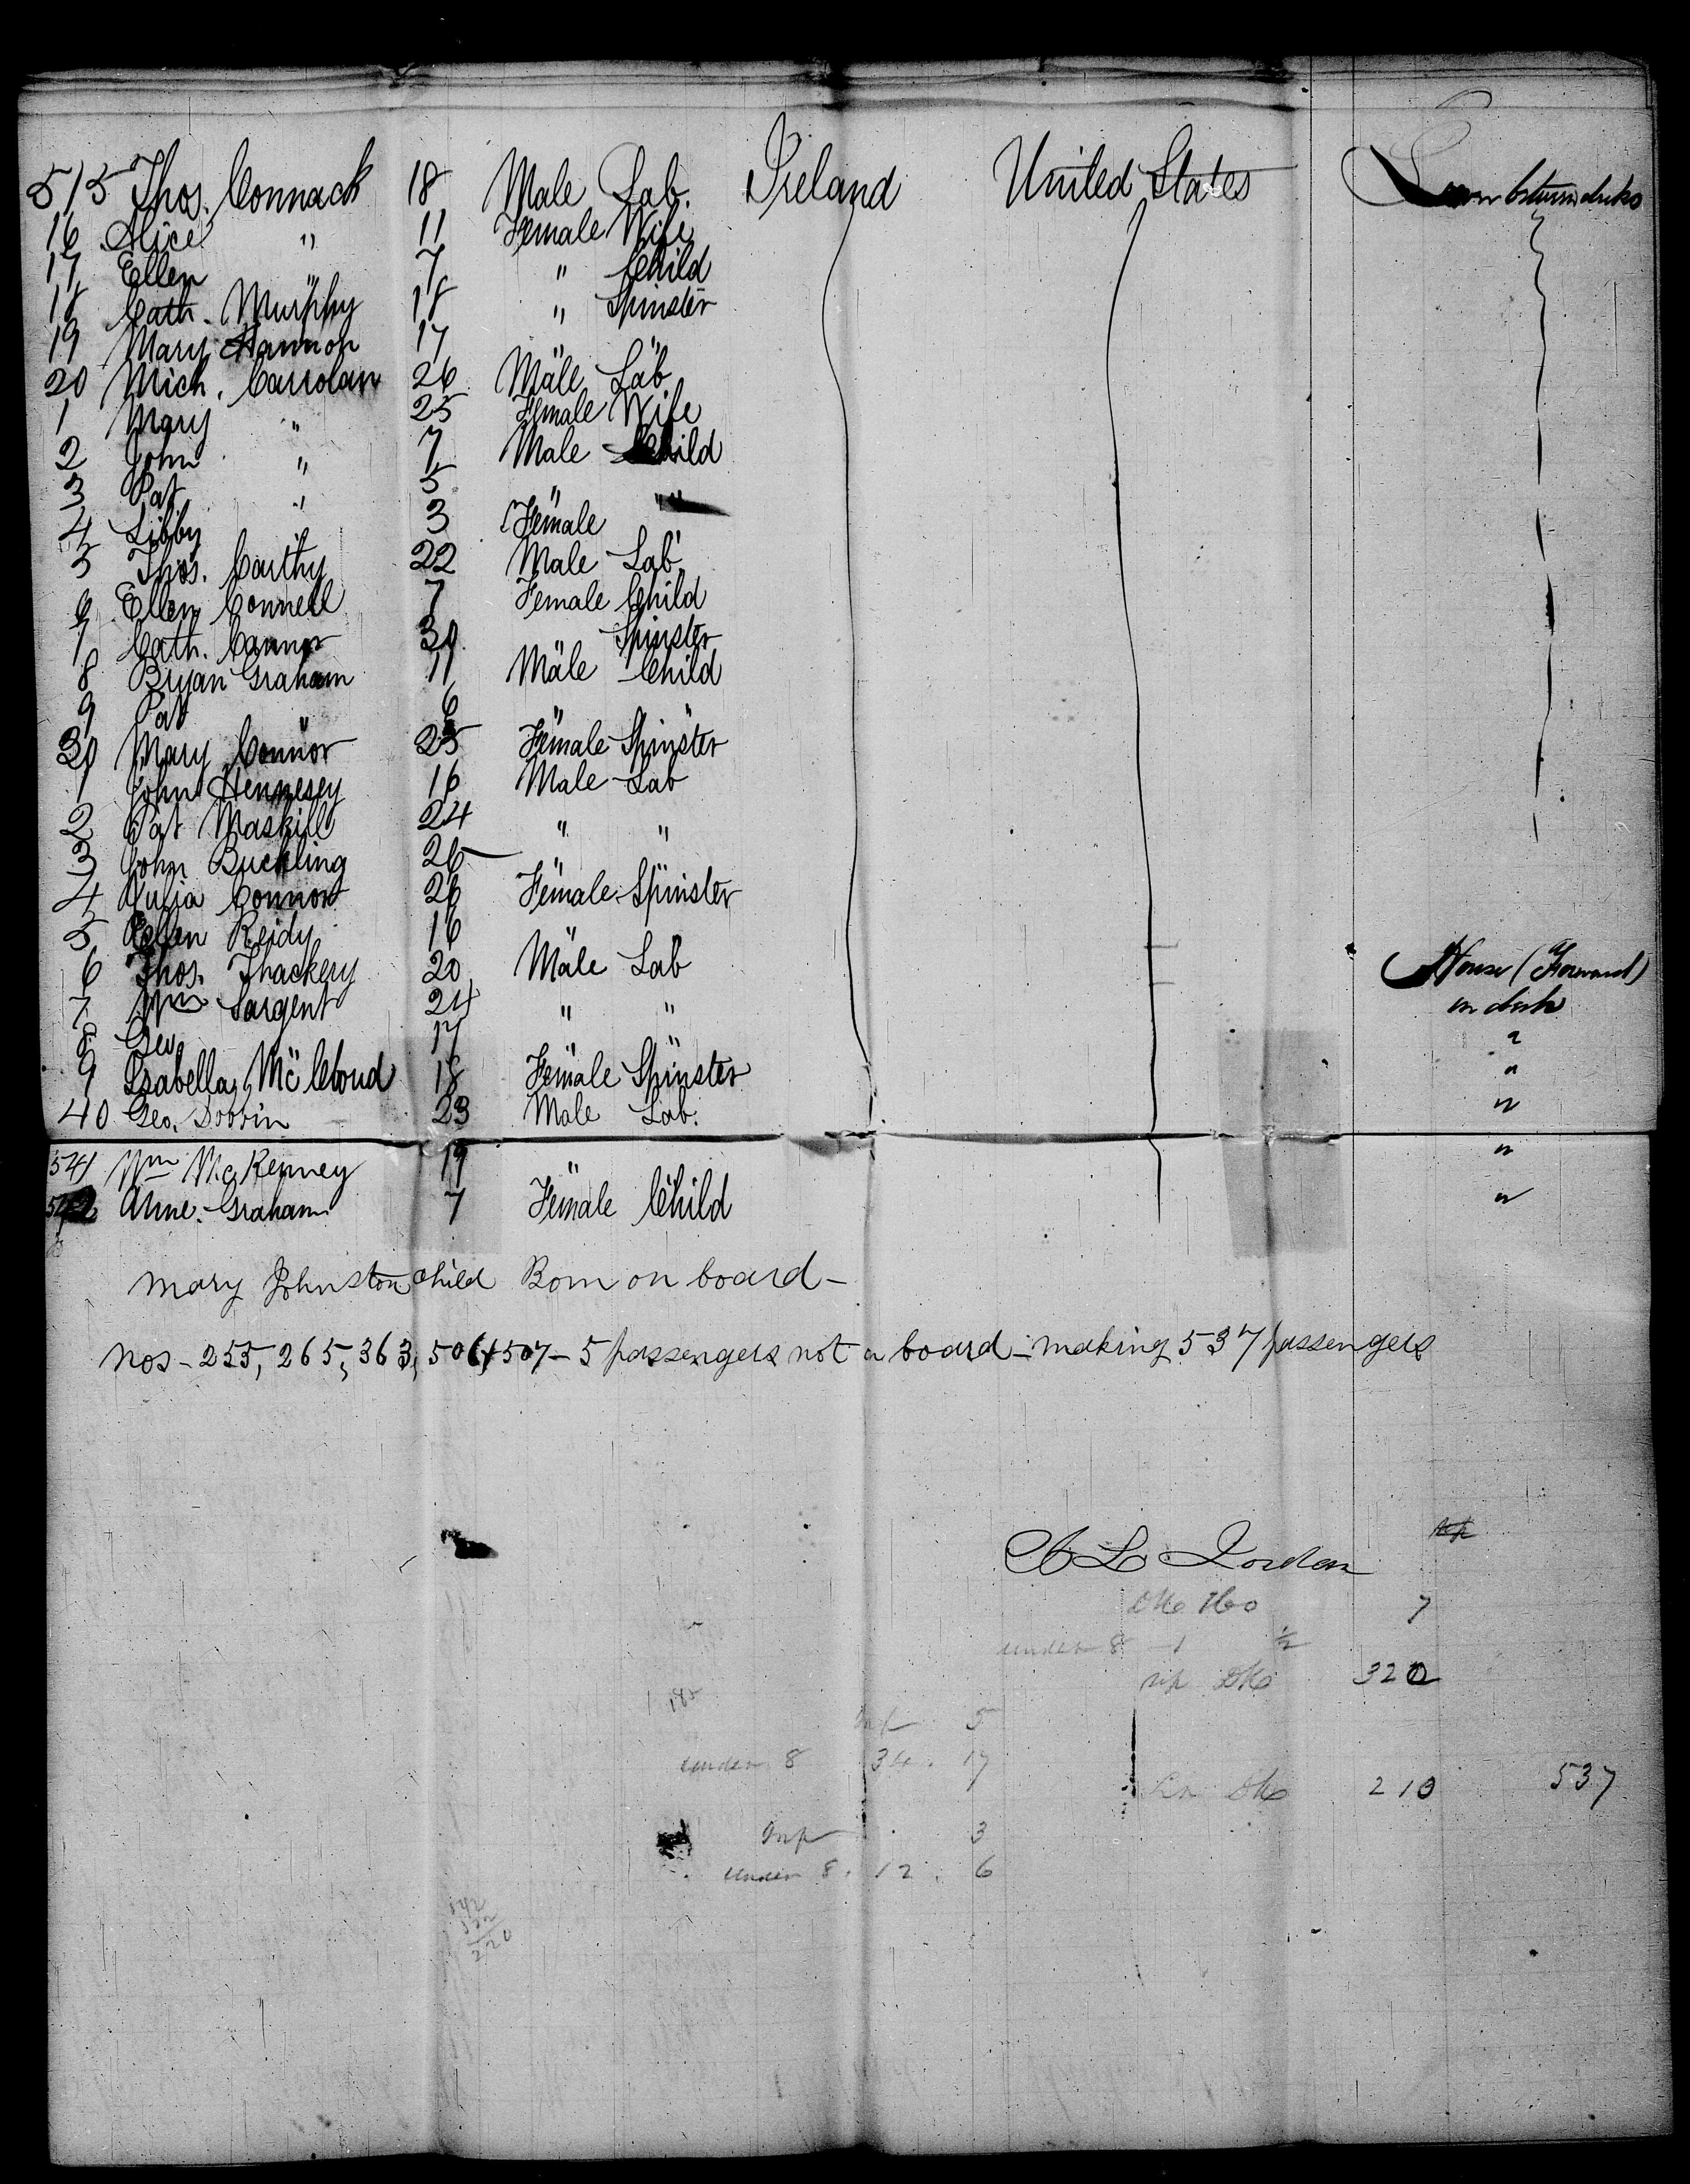 515 Thos. Connack 18 Male Lab. Ireland United States Lower between decks
16 Alice " 11 Female Wife
17 Ellen " 7 " Child
18 Cath. Murphy 18 " Spinster
19 Mary Hannon 17 " "
20 Mich. Carrolan 26 Male Lab
1 Mary " 25 Female Wife
2 John " 7 Male Child
3 Pat " 5 " "
4 Libby 3 Female "
5 Thos. Carthy 22 Male Lab
6 Ellen Connell 7 Female Child
7 Cath. Connor 30 " Spinster
8 Bryan Graham 11 Male Child
9 Pat " 6 " "
30 Mary Connor 25 Female Spinster
1 John Hennesey 16 Male Lab
2 Pat Maskill 24 " "
3 John Buckling 26 " "
4 Julia Connor 26 Female Spinster
5 Ellen Reidy 16 " "
6 Thos. Thackery 20 Male Lab House (Forward)
7 Wm Sargent 24 " " on deck
8 Geo " 17 " " "
9 Isabella Mc Cloud 18 Female Spinster "
40 Geo. Dobbin 23 Male Lab. "
541 Wm McKenney 19 " " "
542 Anne Graham 7 Female Child "
Mary Johnston child Born on board -
Nos - 255, 265, 363, 506 + 507 - 5 passengers not on board - making 537 passengers
Jordan
7
under 8 - 1 1/2
320
5
under 8 34 . 17
210 537
Inf 3
under 8 . 12 . 6